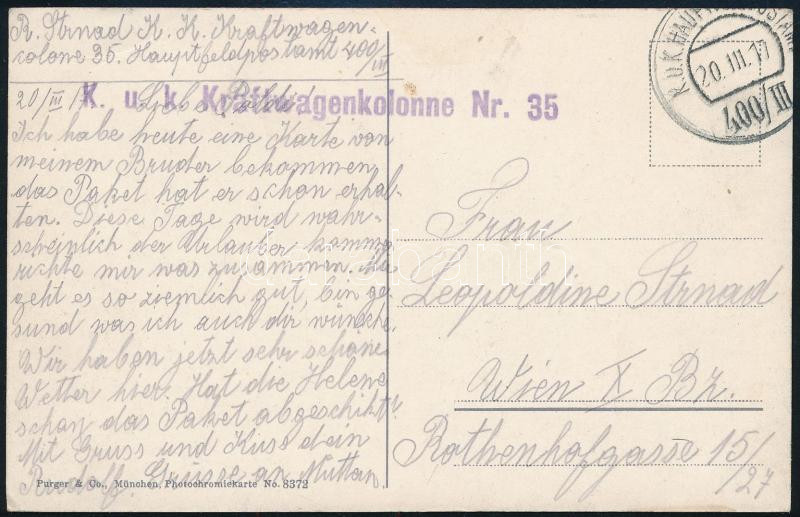 R. Strnad K. K. Kraftwagen-
colone 35. Hauptfeldpostamt 400/III
20/III 17 Liebe Poldi!
K. u. k. Kraftwagenkolonne Nr. 35
Ich habe heute eine Karte von
meinem Bruder bekommen
das Paket hat er schon erhal-
ten. Diese Tage wird wahr-
scheinlich der Urlauber komme
richte mir was zusammen. Mir
geht es so ziemlich gut, bin ge-
sund was ich auch dir wünsche.
Wir haben jetzt sehr schöne
Wetter hier. Hat die Helene
schon das Paket abgeschikt?
Mit Gruss und Kuss dein
Rudolf. Grüsse an Muttar
Purger & Co., München, Photochromiekarte No. 8372
K.U.K. HAUPTFELDPOSTAMT
20.III.17
400/III
Frau
Leopoldine Strnad
Wien X Bz.
Rothenhofgasse 15/
27